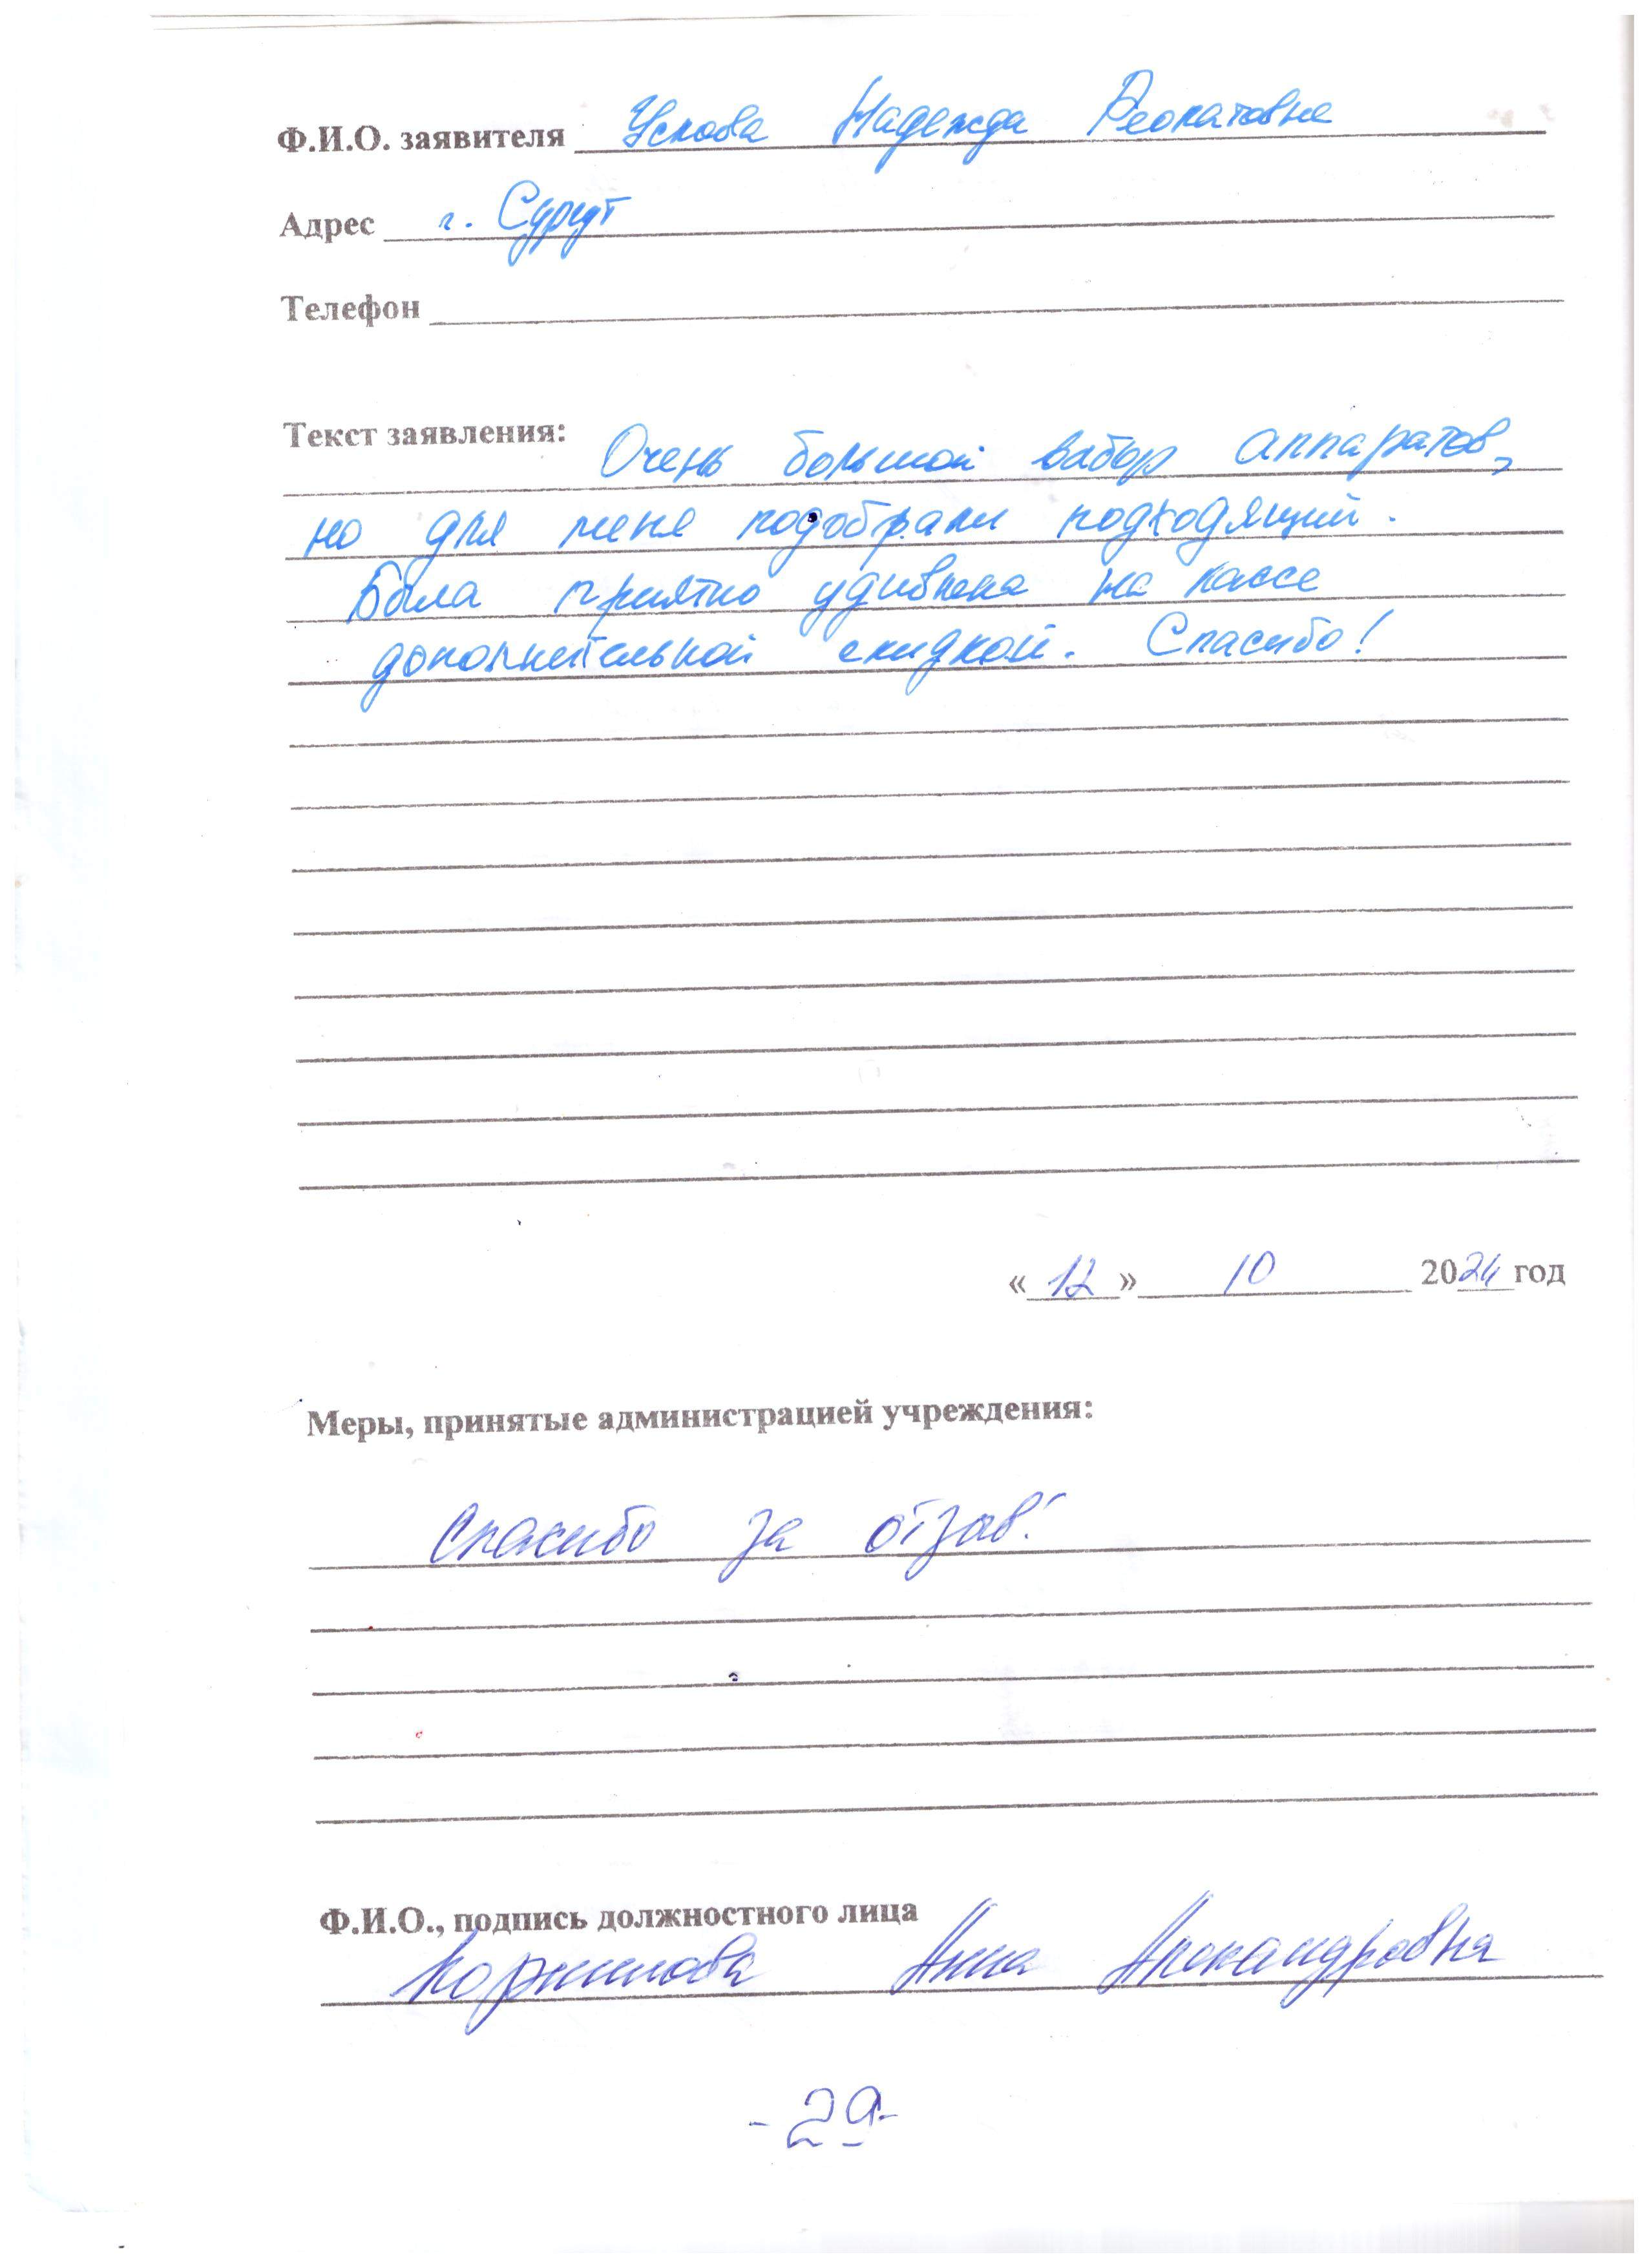 Ф.И.О. заявителя Ускова Надежда
Адрес г. Сургут
Телефон
Текст заявления: Очень большой выбор аппаратов,
но для меня подобрали подходящий.
Была приятно удивлена на кассе
дополнительной скидкой. Спасибо!
«12» 10 2024 год
Меры, принятые администрацией учреждения:
Спасибо за отзыв!
Ф.И.О., подпись должностного лица
Анна Александровна
- 29 -